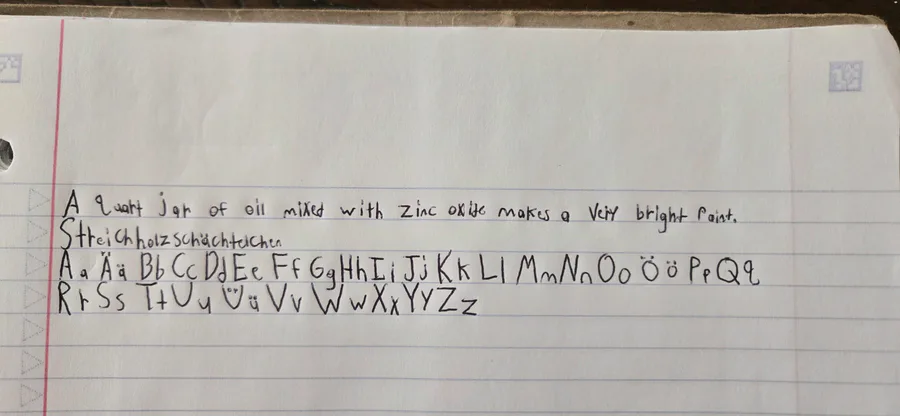 A quart jar of oil mixed with zinc oxide makes a very bright paint.
Streichholzschächtelchen
Aa Ää Bb Cc Dd Ee Ff Gg Hh Ii Jj Kk Ll Mm Nn Oo Öö Pp Qq
Rr Ss Tt Uu Üü Vv Ww Xx Yy Zz